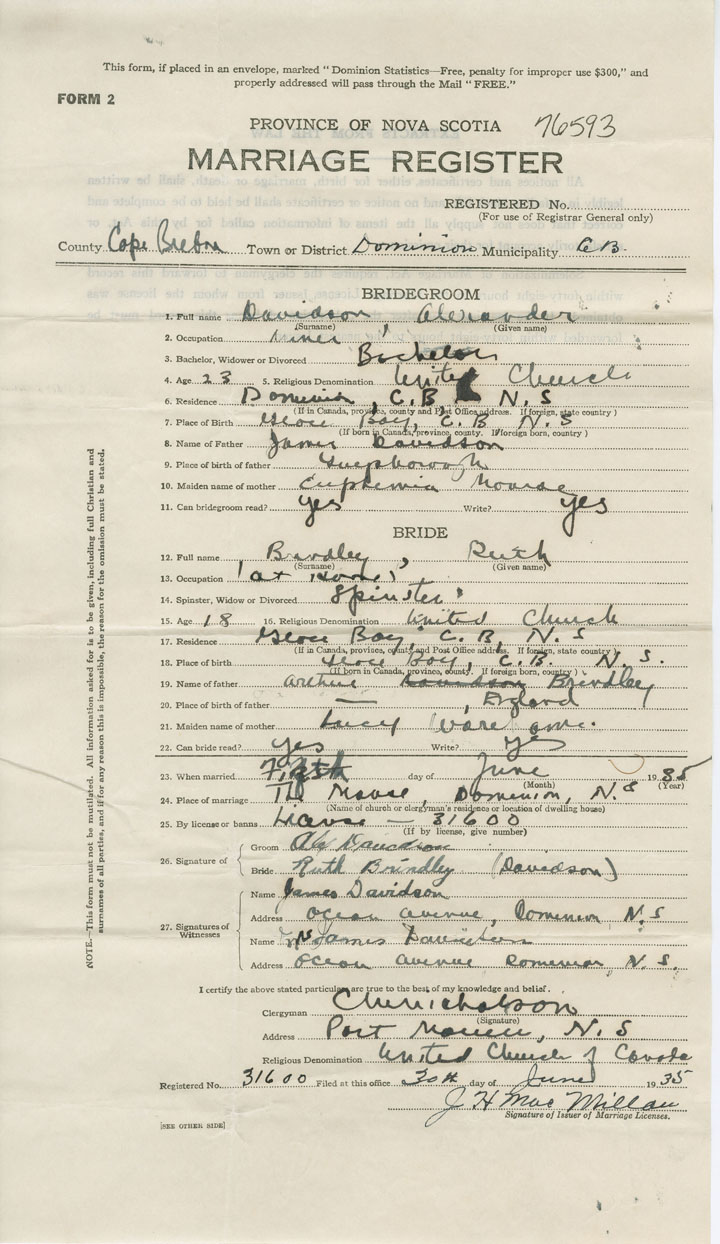 This form, if placed in an envelope, marked "Dominion Statistics—Free, penalty for improper use $300," and
properly addressed will pass through the Mail "FREE."
FORM 2
PROVINCE OF NOVA SCOTIA 76593
MARRIAGE REGISTER
REGISTERED No.
(For use of Registrar General only)
County Cape Breton Town or District Dominion Municipality C.B.
BRIDEGROOM
1. Full name Davidson, Alexander
(Surname) (Given name)
2. Occupation Miner
3. Bachelor, Widower or Divorced Bachelor
4. Age 23 5. Religious Denomination United Church
6. Residence Dominion, C.B. N.S
(If in Canada, province, county and Post Office address. If foreign, state country)
7. Place of Birth Glace Bay, C.B N.S
(If born in Canada, province, county. If foreign born, country)
8. Name of Father James Davidson
9. Place of birth of father Guysborough
10. Maiden name of mother Euphemia
11. Can bridegroom read? yes Write? yes
BRIDE
12. Full name Brindley, Ruth
(Surname) (Given name)
13. Occupation "at Home"
14. Spinster, Widow or Divorced Spinster
15. Age 18 16. Religious Denomination United Church
17. Residence Glace Bay, C.B, N.S
(If in Canada, province, county and Post Office address. If foreign, state country)
18. Place of birth Glace Bay, C.B. N.S.
(If born in Canada, province, county. If foreign born, country)
19. Name of father Arthur Davidson Brindley
20. Place of birth of father — , England
21. Maiden name of mother Lucy Ware
22. Can bride read? yes Write? yes
23. When married day of June 1935
(Month) (Year)
24. Place of marriage The Manse, Dominion, N.S
(Name of church or clergyman's residence or location of dwelling house)
25. By license or banns License — 31600
(If by license, give number)
26. Signature of
Groom Alex Davidson
Bride Ruth Brindley (Davidson)
27. Signatures of Witnesses
Name James Davidson
Address Ocean Avenue, Dominion N.S
Name Mrs James Davidson
Address Ocean Avenue Dominion, N.S.
I certify the above stated particulars are true to the best of my knowledge and belief.
Clergyman Nicholson
(Signature)
Address Port Morien, N.S
Religious Denomination United Church of Canada
Registered No. 31600 Filed at this office 30th day of June 1935
J H MacMillan
Signature of Issuer of Marriage Licenses.
[SEE OTHER SIDE]
NOTE.—This form must not be mutilated. All information asked for is to be given, including full Christian and
surnames of all parties, and if for any reason this is impossible, the reason for the omission must be stated.